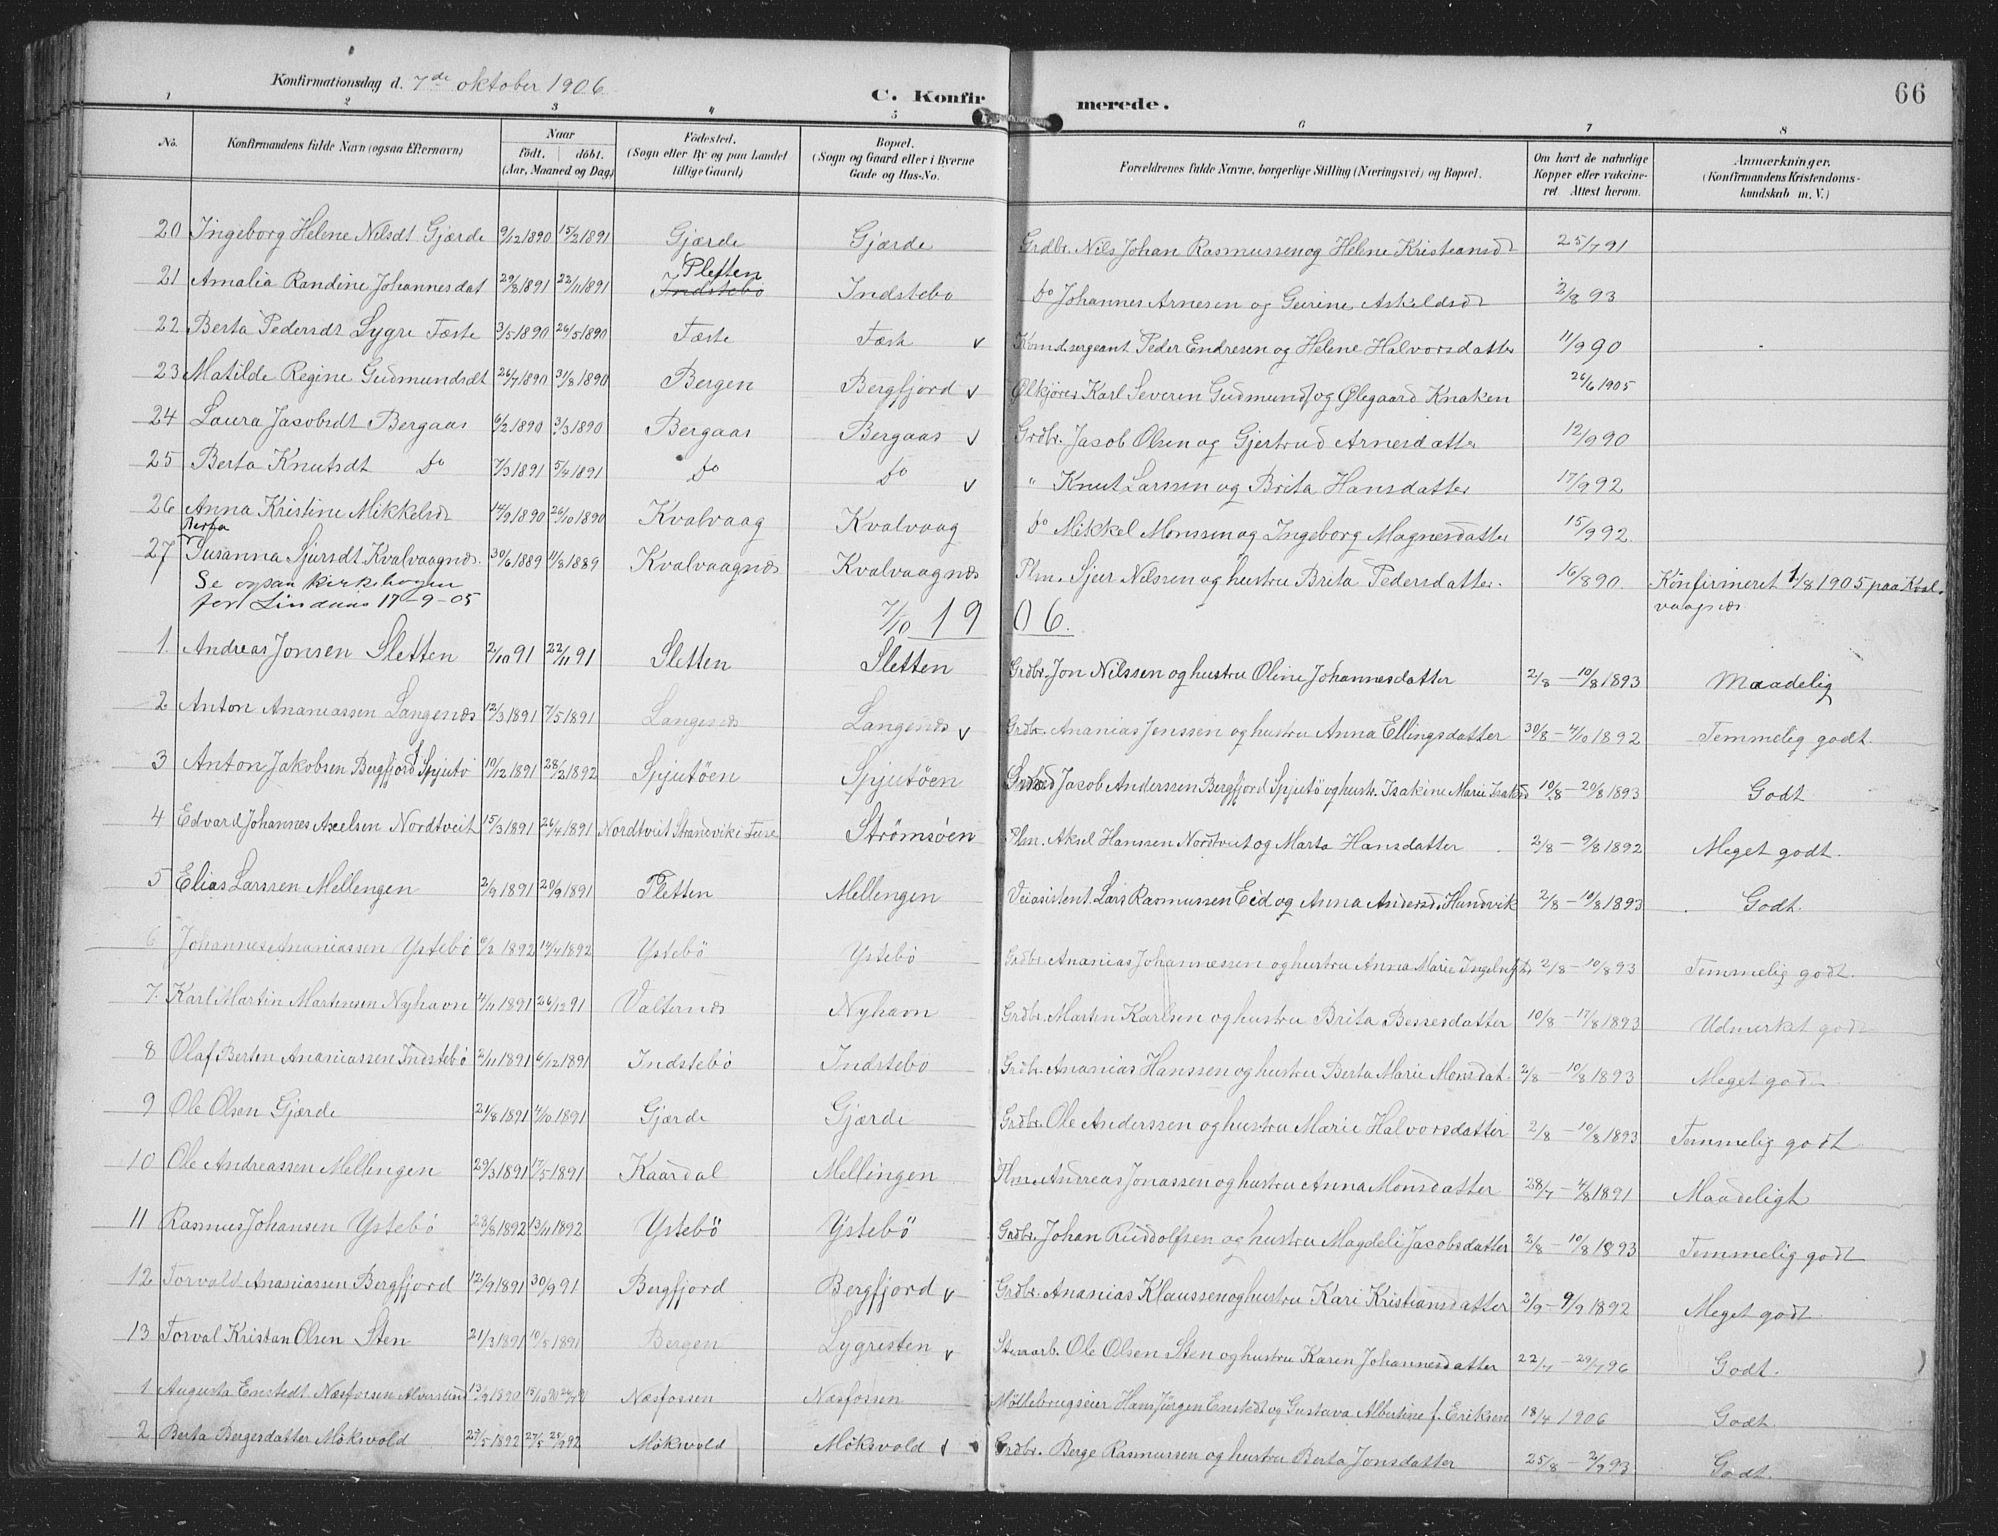 Konfirmationsdag d. 7de oktober 1906.
C. Konfirmerede.
66
1 2 3 4 5 6 7 8
No.
Konfirmandens fulde Navn (ogsaa Efternavn)
Naar
født. døbt.
(Aar, Maaned og Dag)
Fødested.
(Sogn eller By og paa Landet
tillige Gaard)
Bopæl.
(Sogn og Gaard eller i Byerne
Gade og Hus-No.
Forældrenes fulde Navne, borgerlige Stilling (Næringsvei) og Bopæl.
Om havt de naturlige
Kopper eller vakcine-
ret Attest herom.
Anmærkninger.
(Konfirmandens Kristendoms-
kundskab m. V.)
20 Ingeborg Helene Nilsdt Gjærde 9/12 1890 15/2 1891 Gjærde Gjærde Grdbr. Nils Johan Rasmussen og Helene Kristiansd 25/7 91
21 Amalia Randine Johannesdat 29/8 1891 22/11 1891 Sletten Indstebø Indstebø do Johannes Arnesen og Geirine Askeldsdt 2/8 93
22 Berta Pedersdt Lygre Fæste 3/5 1890 26/5 1890 Fæste Fæste v Kmd.sergeant Peder Endresen og Helene Halvorsdatter 11/9 90
23 Matilde Regine Gudmundsdt 26/7 1890 31/8 1890 Bergen Bergfjord v Ølkjører Karl Severin Gudmunds og Ølegaard Knaken 26/6 1905
24 Laura Jacobsdt Bergaas 6/2 1890 3/3 1890 Bergaas Bergaas v Grdbr. Jacob Olsen og Gjertrud Arnesdatter 12/9 90
25 Berta Knutsdt do 7/3 1891 5/4 1891 do do v " Knut Larssen og Brita Hansdatter 17/9 92
26 Anna Kristine Mikkelsd 14/9 1890 26/10 1890 Kvalvaag Kvalvaag do Mikkel Monssen og Ingeborg Magnesdatter 15/9 92
Berta
27 Susanna Sjursdt Kvalvaagnæs. 30/6 1889 4/8 1889 Kvalvaagnæs Kvalvaagnæs Plm. Sjur Nilssen og hustru Brita Pedersdatter. 16/8 90. Konfirmeret 1/8 1905 paa Kval-
vaagnæs
Se ogsaa kirkebogen
for Lindaas 17-9-05
7/10 1906.
1 Andreas Jonsen Sletten 2/10 91 22/11 91 Sletten Sletten Grdbr. Jon Nilssen og hustru Oline Johannesdatter 2/8 – 10/8 1893 Maadelig
2 Anton Ananiassen Langenæs 12/3 1891 7/5 1891 Langenæs Langenæs v Grdbr. Ananias Jenssen og hustru Anna Ellingsdatter 30/8 – 4/10 1892 Temmelig godt.
3 Anton Jakobsen Bergfjord Spjutø 10/12 1891 28/2 1892 Spjutøen Spjutøen Jacob Anderssen Bergfjord Spjutø og hustr. Isakine Marie Isaksd 10/8 – 20/8 1893 Godt
4 Edvard Johannes Axelsen Nordtveit 15/3 1891 26/4 1891 Nordtveit Strandvik i Fuse Strømsøen Plm. Aksel Hanssen Nordtveit og Marta Hansdatter 2/8 – 9/8 1892 Meget godt.
5 Elias Larssen Mellengen 2/9 1891 20/9 1891 Sletten Mellengen Veiasistent. Lars Rasmussen Eid og Anna Andersd. Hundvik 2/8 – 10/8 1893 Godt.
6 Johannes Ananiassen Ystebø 6/3 1892 14/4 1892 Ystebø Ystebø Grdbr. Ananias Johannessen og hustru Anna Marie 2/8 – 10/8 93 Temmelig godt.
7 Karl Martin Martinsen Nyhavn 4/11 1891 26/12 91 Valternæs Nyhavn Grdbr. Marten Karlsen og hustru Brita Bessesdatter 10/8 – 17/8 1893 Udmerket godt
8 Olaf Berten Ananiassen Indstebø 2/11 1891 6/12 1891 Indstebø Indstebø Grdbr. Ananias Hanssen og hustru Berta Marie Monsdat. 2/8 – 10/8 1893 Meget godt
9 Ole Olsen Gjærde 21/8 1891 4/10 1891 Gjærde Gjærde Grdbr. Ole Anderssen og hustru Marie Halvorsdatter 2/8 – 10/8 1893 Temmelig godt
10 Ole Andreassen Mellengen 29/3 1891 17/5 1891 Kaardal Mellingen Plm. Andreas Jonassen og hustru Anna Monsdatter 28/7 – 4/8 1891 Maadeligt
11 Rasmus Johansen Ystebø 23/8 1892 13/11 1892 Ystebø Ystebø Grdbr. Johan Ruddolfsen og hustru Magdeli Jacobsdatter 2/8 – 10/8 1893 Temmelig godt
12 Torvald Ananiassen Bergfjord 12/9 1891 30/9 91 Bergfjord Bergfjord v Grdbr. Ananias Klaussen og hustru Kari Kristiansdatter 2/9 – 9/9 1892 Meget godt.
13 Torval Kristan Olsen Sten 21/3 1891 10/5 1891 Bergen Lygresten v Stenarb. Ole Olsen Sten og hustru Karen Johannesdatter 22/7 – 29/7 96 Godt.
1 Augusta Enstedt Næsfossen Alversund 13/9 1890 15/10 90 Næsfossen Næsfossen Møllebrugseier Hans Jürgen Enstedt og Gustava Albertine f. Eriksen 18/4 1906 Godt
2 Berta Bergesdatter Møksvold 27/5 1892 Møksvold Møksvold v Grdbr. Berge Rasmussen og hustru Berta Jonsdatter 25/8 – 2/9 93 Godt.